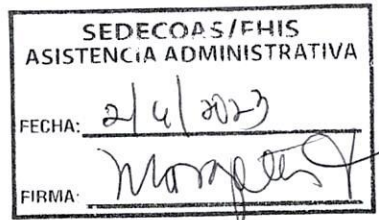 SEDECOAS/FHIS
ASISTENCIA ADMINISTRATIVA
FECHA: 2/4/2023
FIRMA: